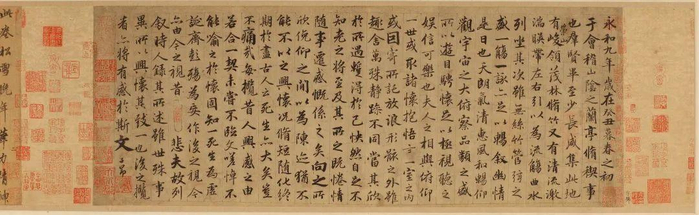 永和九年歲在癸丑暮春之初
于會稽山陰之蘭亭脩稧事
也群賢畢至少長咸集此地
有峻領茂林脩竹又有清流激
湍暎帶左右引以為流觴曲水
列坐其次雖無絲竹管弦之
盛一觴一詠亦足以暢敘幽情
是日也天朗氣清惠風和暢仰
觀宇宙之大俯察品類之盛
所以遊目騁懷足以極視聽之
娛信可樂也夫人之相與俯仰
一世或取諸懷抱悟言一室之內
或因寄所託放浪形骸之外雖
趣舍萬殊靜躁不同當其欣
於所遇蹔得於己怏然自足不
知老之將至及其所之既惓情
隨事遷感慨係之矣向之所
欣俛仰之間以為陳迹猶不
能不以之興懷況脩短隨化終
期於盡古人云死生亦大矣豈
不痛哉每攬昔人興感之由
若合一契未嘗不臨文嗟悼不
能喻之於懷固知一死生為虛
誕齊彭殤為妄作後之視今
亦由今之視昔悲夫故列
敘時人錄其所述雖世殊事
異所以興懷其致一也後之攬
者亦將有感於斯文
此卷松雪晚年筆力精神